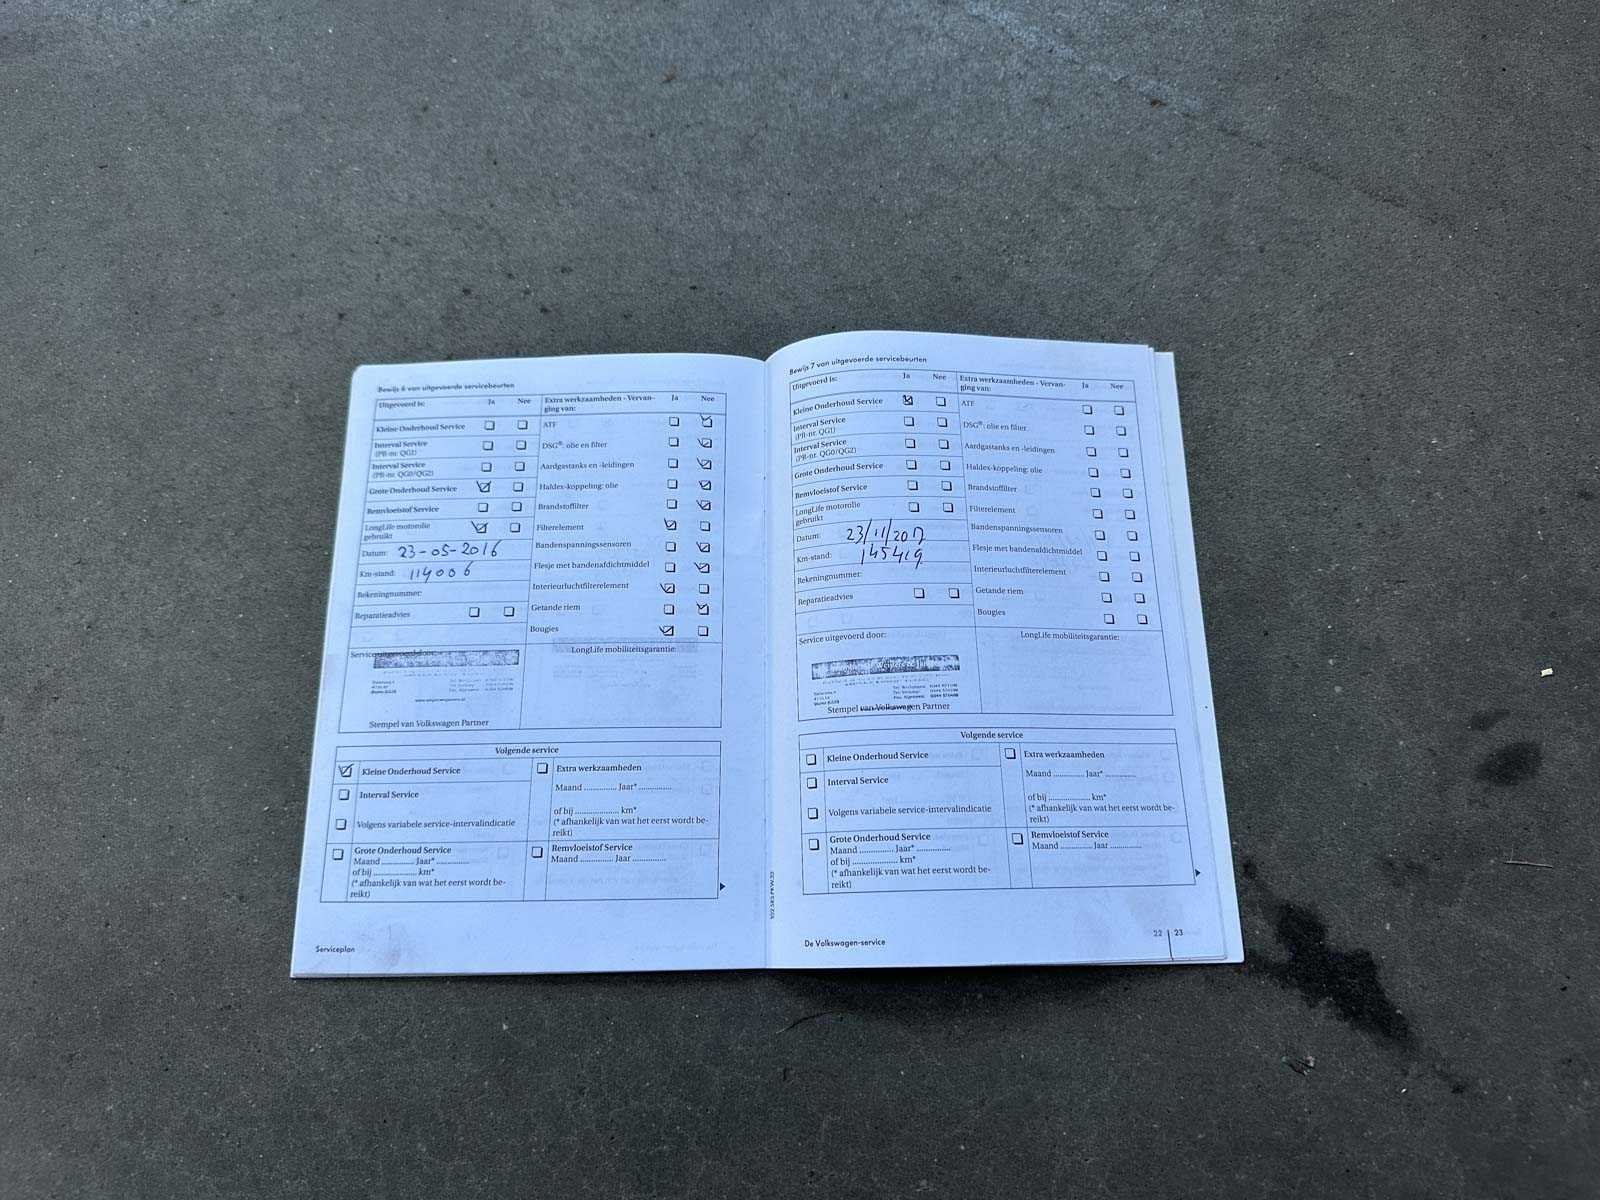 Bewijs 6 van uitgevoerde servicebeurten
Uitgevoerd is: Ja Nee Extra werkzaamheden - Vervan-
ging van: Ja Nee
Kleine Onderhoud Service
ATF
Interval Service
(PR-nr. QG1)
DSG®: olie en filter
Interval Service
(PR-nr. QG0/QG2)
Aardgastanks en -leidingen
Grote Onderhoud Service
Haldex-koppeling: olie
Remvloeistof Service
Brandstoffilter
LongLife motorolie
gebruikt
Filterelement
Datum: 23-05-2016
Bandenspanningssensoren
Km-stand: 114006
Flesje met bandenafdichtmiddel
Rekeningnummer:
Interieurluchtfilterelement
Reparatieadvies
Getande riem
Bougies
Service uitgevoerd door:
LongLife mobiliteitsgarantie:
Stempel van Volkswagen Partner
Volgende service
Kleine Onderhoud Service
Interval Service
Volgens variabele service-intervalindicatie
Extra werkzaamheden
Maand .............. Jaar* ..............
of bij ................... km*
(* afhankelijk van wat het eerst wordt be-
reikt)
Grote Onderhoud Service
Maand .............. Jaar* ..............
of bij ................... km*
(* afhankelijk van wat het eerst wordt be-
reikt)
Remvloeistof Service
Maand .............. Jaar ..............
Serviceplan
Bewijs 7 van uitgevoerde servicebeurten
Uitgevoerd is: Ja Nee Extra werkzaamheden - Vervan-
ging van: Ja Nee
Kleine Onderhoud Service
ATF
Interval Service
(PR-nr. QG1)
DSG®: olie en filter
Interval Service
(PR-nr. QG0/QG2)
Aardgastanks en -leidingen
Grote Onderhoud Service
Haldex-koppeling: olie
Remvloeistof Service
Brandstoffilter
LongLife motorolie
gebruikt
Filterelement
Datum: 23/11/2017
Bandenspanningssensoren
Km-stand: 145419
Flesje met bandenafdichtmiddel
Rekeningnummer:
Interieurluchtfilterelement
Reparatieadvies
Getande riem
Bougies
Service uitgevoerd door:
LongLife mobiliteitsgarantie:
Stempel van Volkswagen Partner
Volgende service
Kleine Onderhoud Service
Interval Service
Volgens variabele service-intervalindicatie
Extra werkzaamheden
Maand .............. Jaar* ..............
of bij ................... km*
(* afhankelijk van wat het eerst wordt be-
reikt)
Grote Onderhoud Service
Maand .............. Jaar* ..............
of bij ................... km*
(* afhankelijk van wat het eerst wordt be-
reikt)
Remvloeistof Service
Maand .............. Jaar ..............
De Volkswagen-service
22 | 23